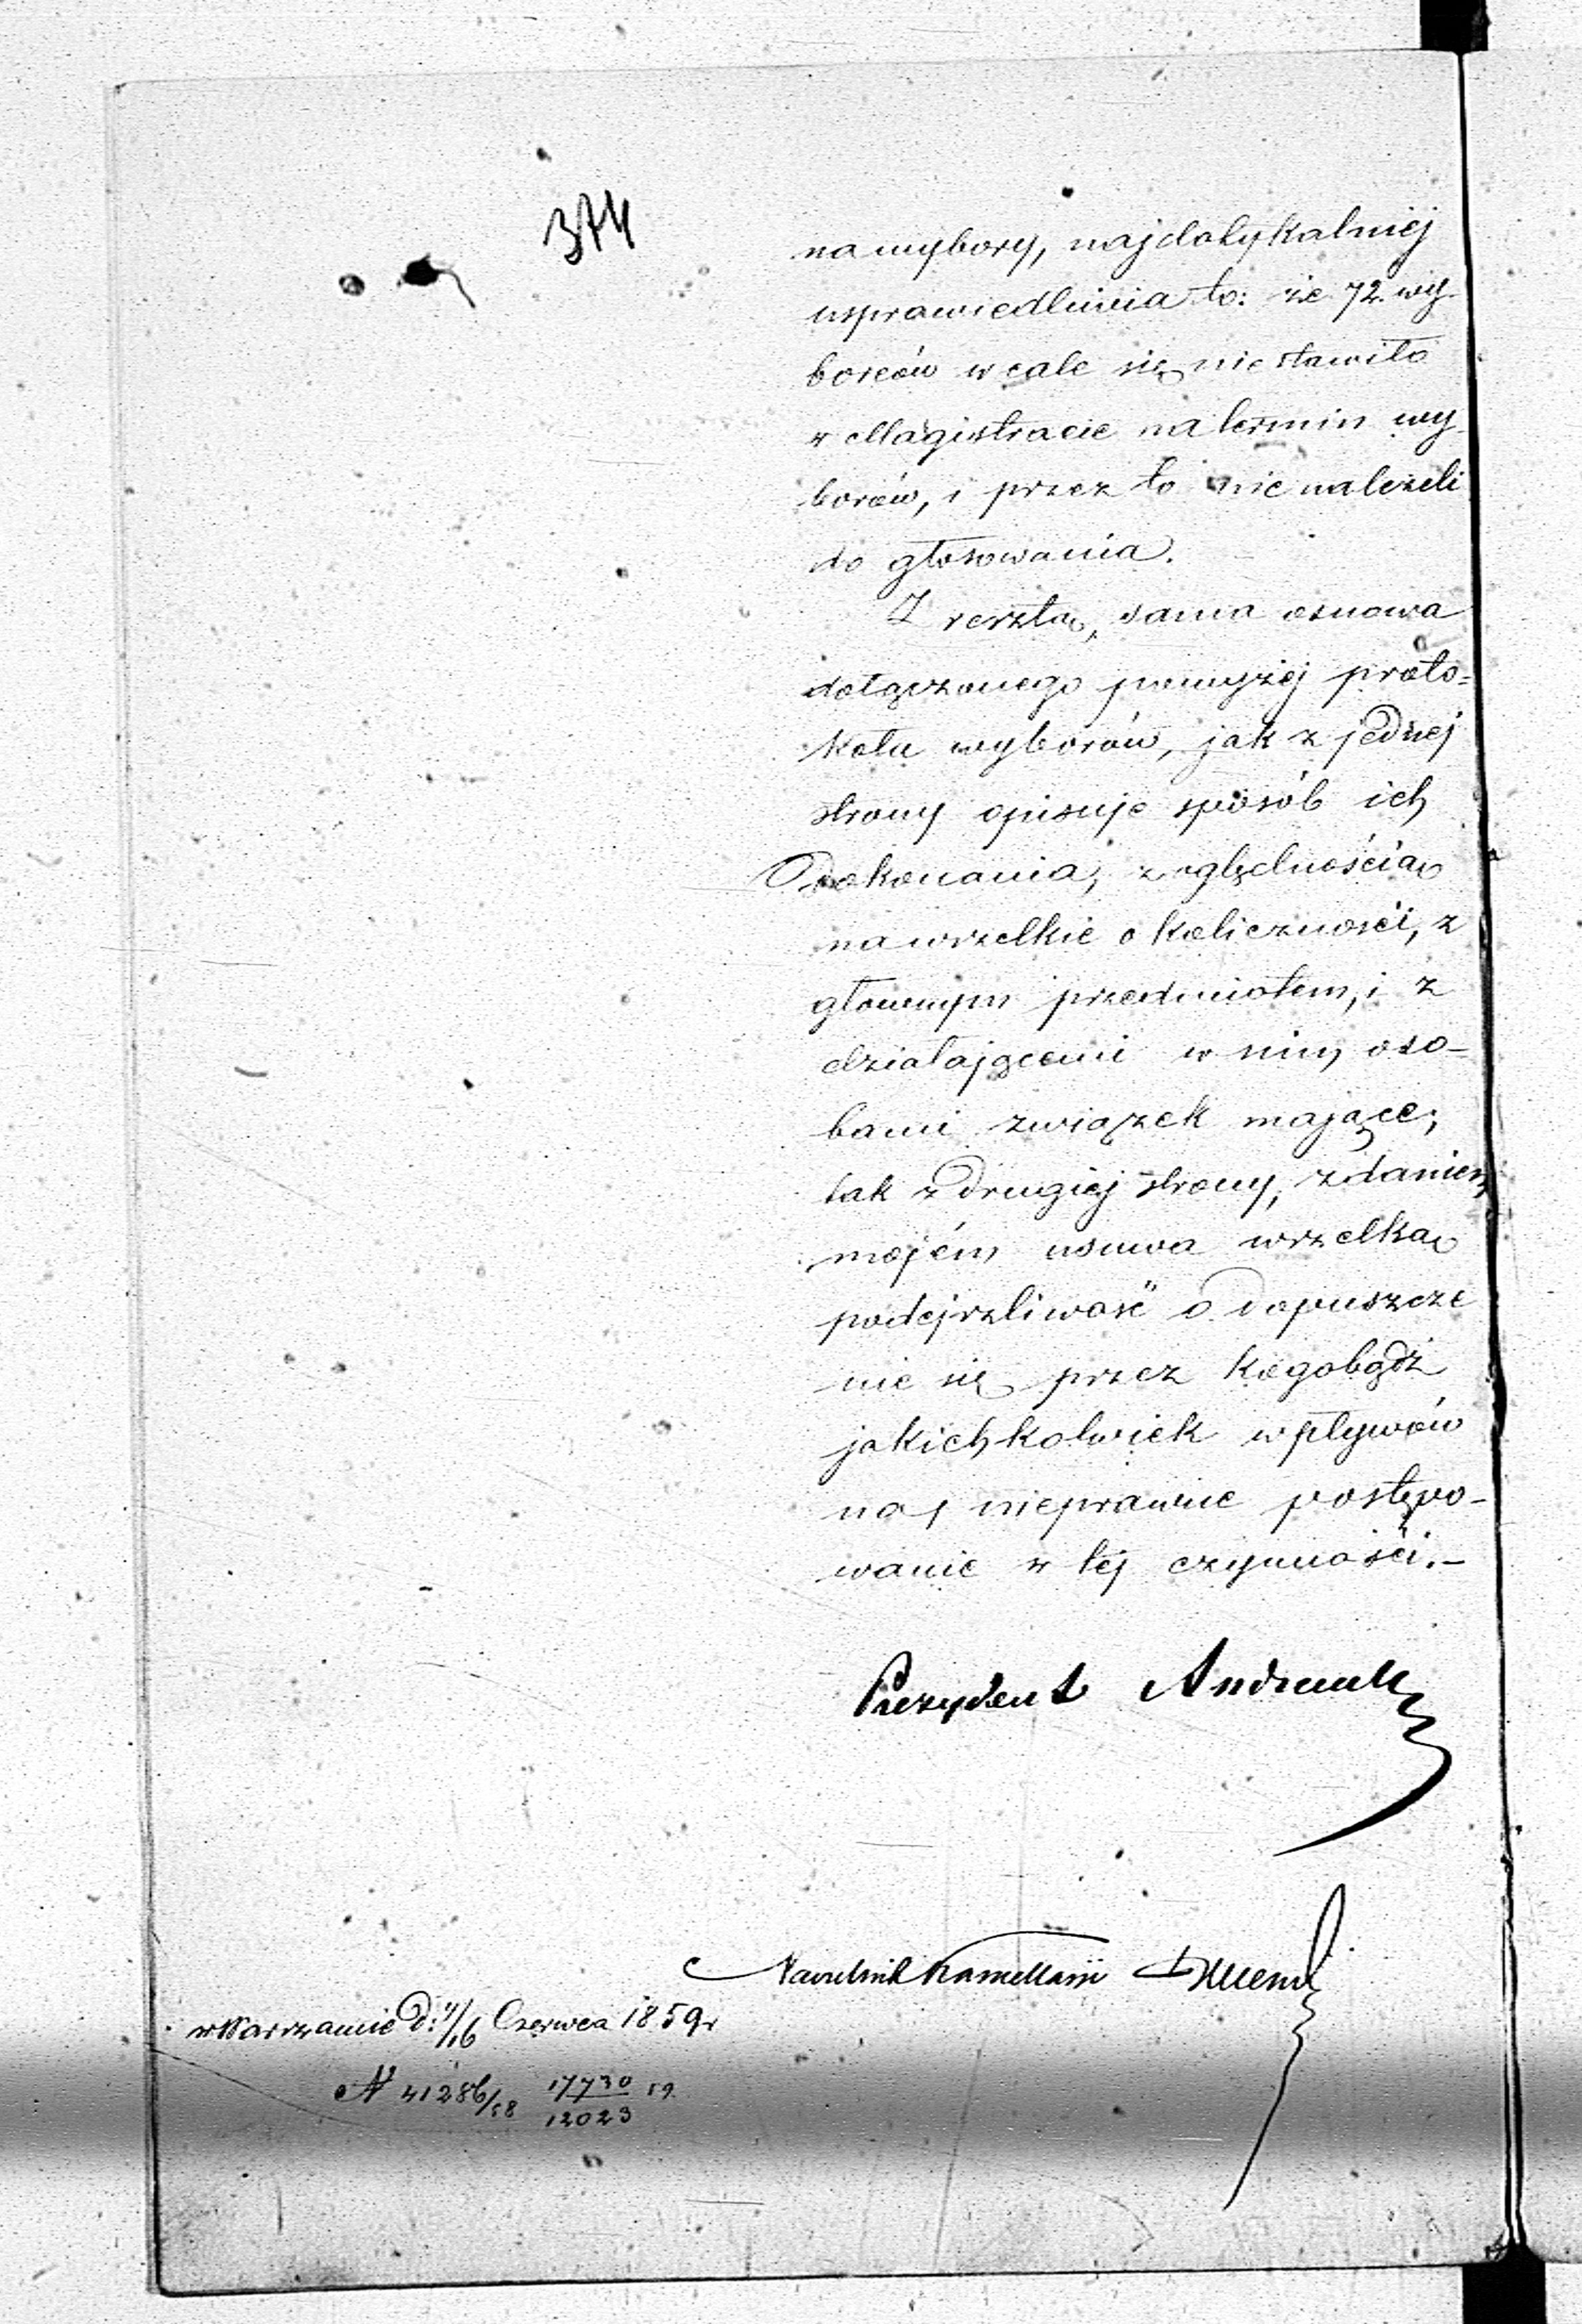 374
na wybory, najdotykalniej
usprawiedliwia to: że 72. wy-
borców wcale się nie stawiło
w Magistracie na termin wy-
borów, i przez to nie należeli
do głosowania.
Z resztą, sama osnowa
dołączonego powyżej proto=
kołu wyborów, jak z jednej
strony opisuje sposób ich
Dokonania, z oględnością
na wszelkie okoliczności, z
głownym przedmiotem, i z
działającemi w nim oso-
bami związek mające;
tak z drugiej strony, zdaniem
mojém usuwa wszelką
podejrzliwość o dopuszcze
nie się przez kogobądź
jakichkolwiek wpływów
na nieprawne postępo-
wanie w tej czynności.-
Prezydent Andrault
Naczelnik Kancellarji
w Warszawie d: 4/16 Czerwca 1859 r
N 41286/58 17730/12023 59.